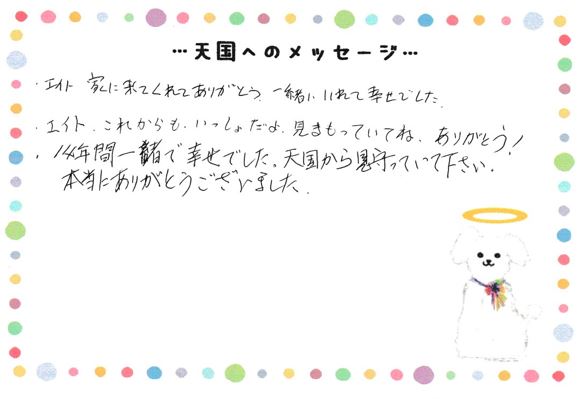 …天国へのメッセージ…
・エイト 家に来てくれてありがとう 一緒にいれて幸せでした.
・エイト、これからも、いっしょだよ、見まもっていてね、ありがとう！
・14年間一緒で幸せでした。天国から見守っていて下さい.
本当にありがとうございました.